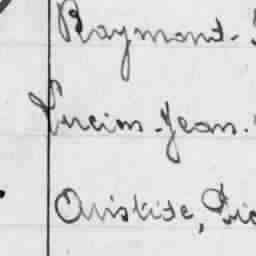 Raymond-
Lucien-Jean.
Aristide,